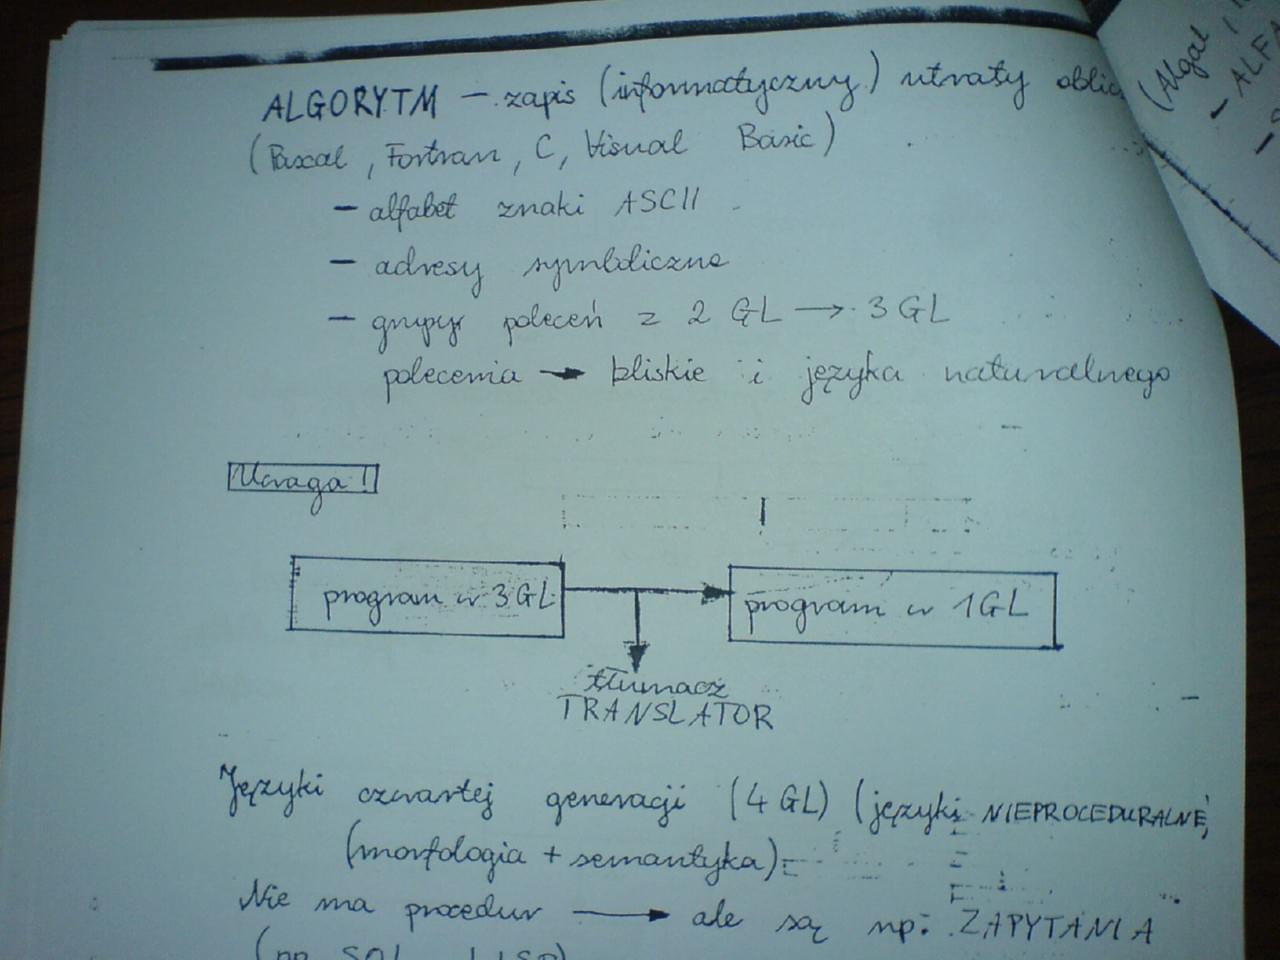 ALGORYTM – zapis (informatyczny) utraty oblic
(Pascal, Fortran, C, Visual Basic)
– alfabet znaki ASCII
– adresy symboliczne
– grupy poleceń z 2 GL → 3 GL
polecenia → bliskie i języka naturalnego
Uwaga!
program w 3GL
program w 1GL
tłumacz
TRANSLATOR
Języki czwartej generacji (4 GL) (języki NIEPROCEDURALNE,
(morfologia + semantyka)
Nie ma procedur → ale są np: ZAPYTANIA
(np SQL, LISP)
(Algol,
– ALFA